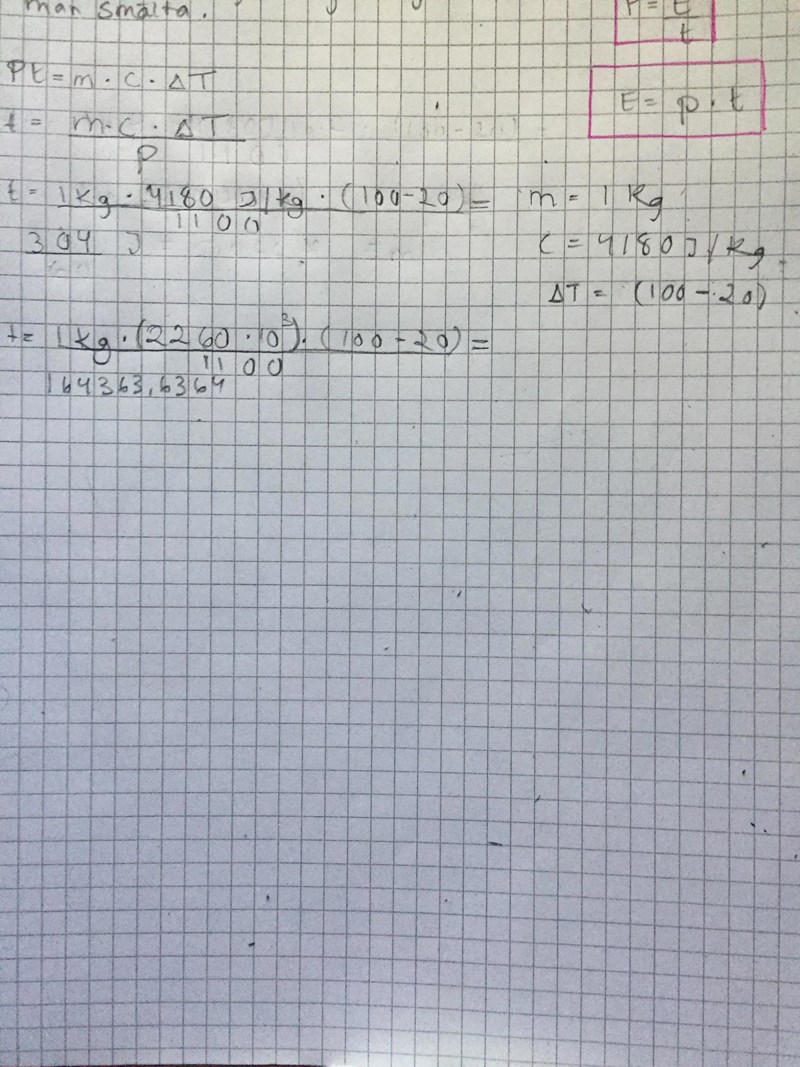 man smälta.
P = E
t
Pt = m · c · ΔT
E = p · t
t = m·c · ΔT
P
t = 1kg · 4180 J/kg · (100-20) =
1100
m = 1 kg
304 J
c = 4180 J/kg
ΔT = (100-20)
t = 1kg · (2260 · 10³) · (100-20) =
1100
164363,6364